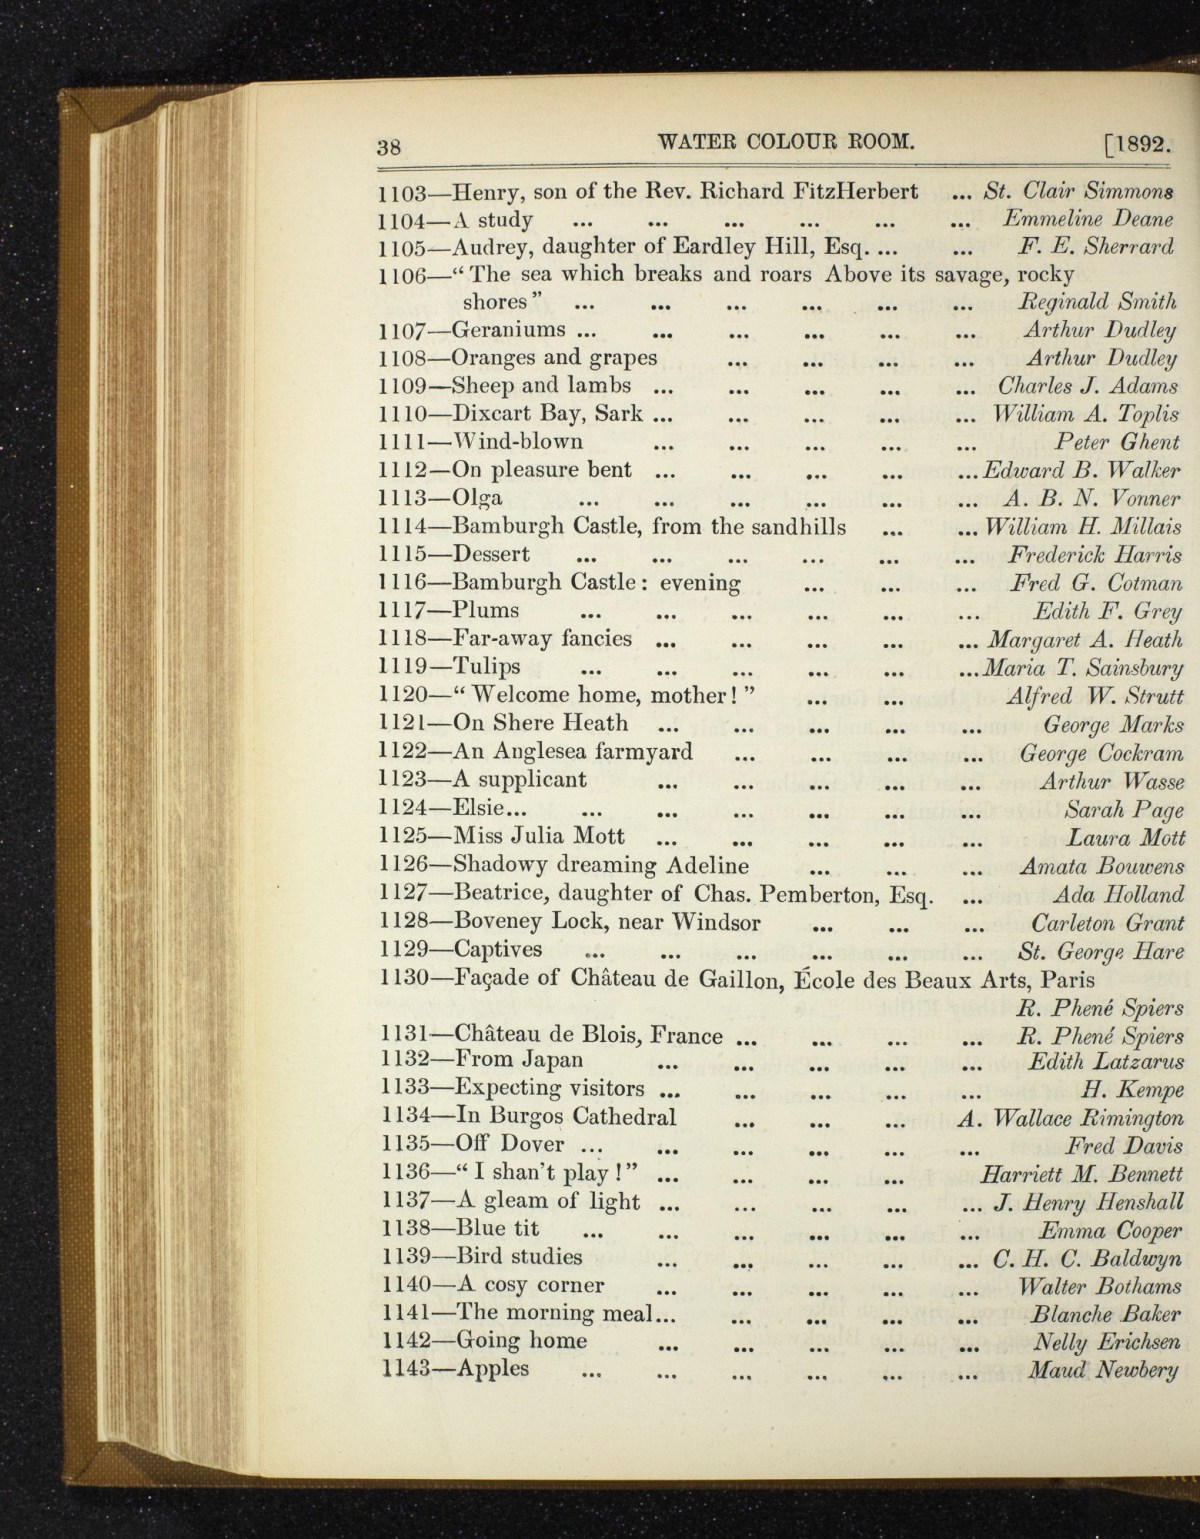 38 WATER COLOUR ROOM. [1892.
1103—Henry, son of the Rev. Richard FitzHerbert ... St. Clair Simmons
1104—A study ... ... ... ... ... ... Emmeline Deane
1105—Audrey, daughter of Eardley Hill, Esq. ... ... F. E. Sherrard
1106—“ The sea which breaks and roars Above its savage, rocky
shores ” ... ... ... ... ... ... Reginald Smith
1107—Geraniums ... ... ... ... ... ... Arthur Dudley
1108—Oranges and grapes ... ... ... ... Arthur Dudley
1109—Sheep and lambs ... ... ... ... ... Charles J. Adams
1110—Dixcart Bay, Sark ... ... ... ... ... William A. Toplis
1111—Wind-blown ... ... ... ... ... Peter Ghent
1112—On pleasure bent ... ... ... ... ... Edward B. Walker
1113—Olga ... ... ... ... ... ... A. B. N. Vonner
1114—Bamburgh Castle, from the sandhills ... ... William H. Millais
1115—Dessert ... ... ... ... ... ... Frederick Harris
1116—Bamburgh Castle : evening ... ... ... Fred G. Cotman
1117—Plums ... ... ... ... ... ... Edith F. Grey
1118—Far-away fancies ... ... ... ... ... Margaret A. Heath
1119—Tulips ... ... ... ... ... ... Maria T. Sainsbury
1120—“ Welcome home, mother ! ” ... ... Alfred W. Strutt
1121—On Shere Heath ... ... ... ... ... George Marks
1122—An Anglesea farmyard ... ... ... ... George Cockram
1123—A supplicant ... ... ... ... ... Arthur Wasse
1124—Elsie... ... ... ... ... ... ... Sarah Page
1125—Miss Julia Mott ... ... ... ... ... Laura Mott
1126—Shadowy dreaming Adeline ... ... ... Amata Bouwens
1127—Beatrice, daughter of Chas. Pemberton, Esq. ... Ada Holland
1128—Boveney Lock, near Windsor ... ... ... Carleton Grant
1129—Captives ... ... ... ... ... ... St. George Hare
1130—Façade of Château de Gaillon, École des Beaux Arts, Paris
R. Phené Spiers
1131—Château de Blois, France ... ... ... ... R. Phené Spiers
1132—From Japan ... ... ... ... ... Edith Latzarus
1133—Expecting visitors ... ... ... ... ... H. Kempe
1134—In Burgos Cathedral ... ... ... A. Wallace Rimington
1135—Off Dover ... ... ... ... ... ... Fred Davis
1136—“ I shan’t play ! ” ... ... ... ... Harriett M. Bennett
1137—A gleam of light ... ... ... ... ... J. Henry Henshall
1138—Blue tit ... ... ... ... ... ... Emma Cooper
1139—Bird studies ... ... ... ... ... C. H. C. Baldwyn
1140—A cosy corner ... ... ... ... ... Walter Bothams
1141—The morning meal... ... ... ... ... Blanche Baker
1142—Going home ... ... ... ... ... Nelly Erichsen
1143—Apples ... ... ... ... ... ... Maud Newbery